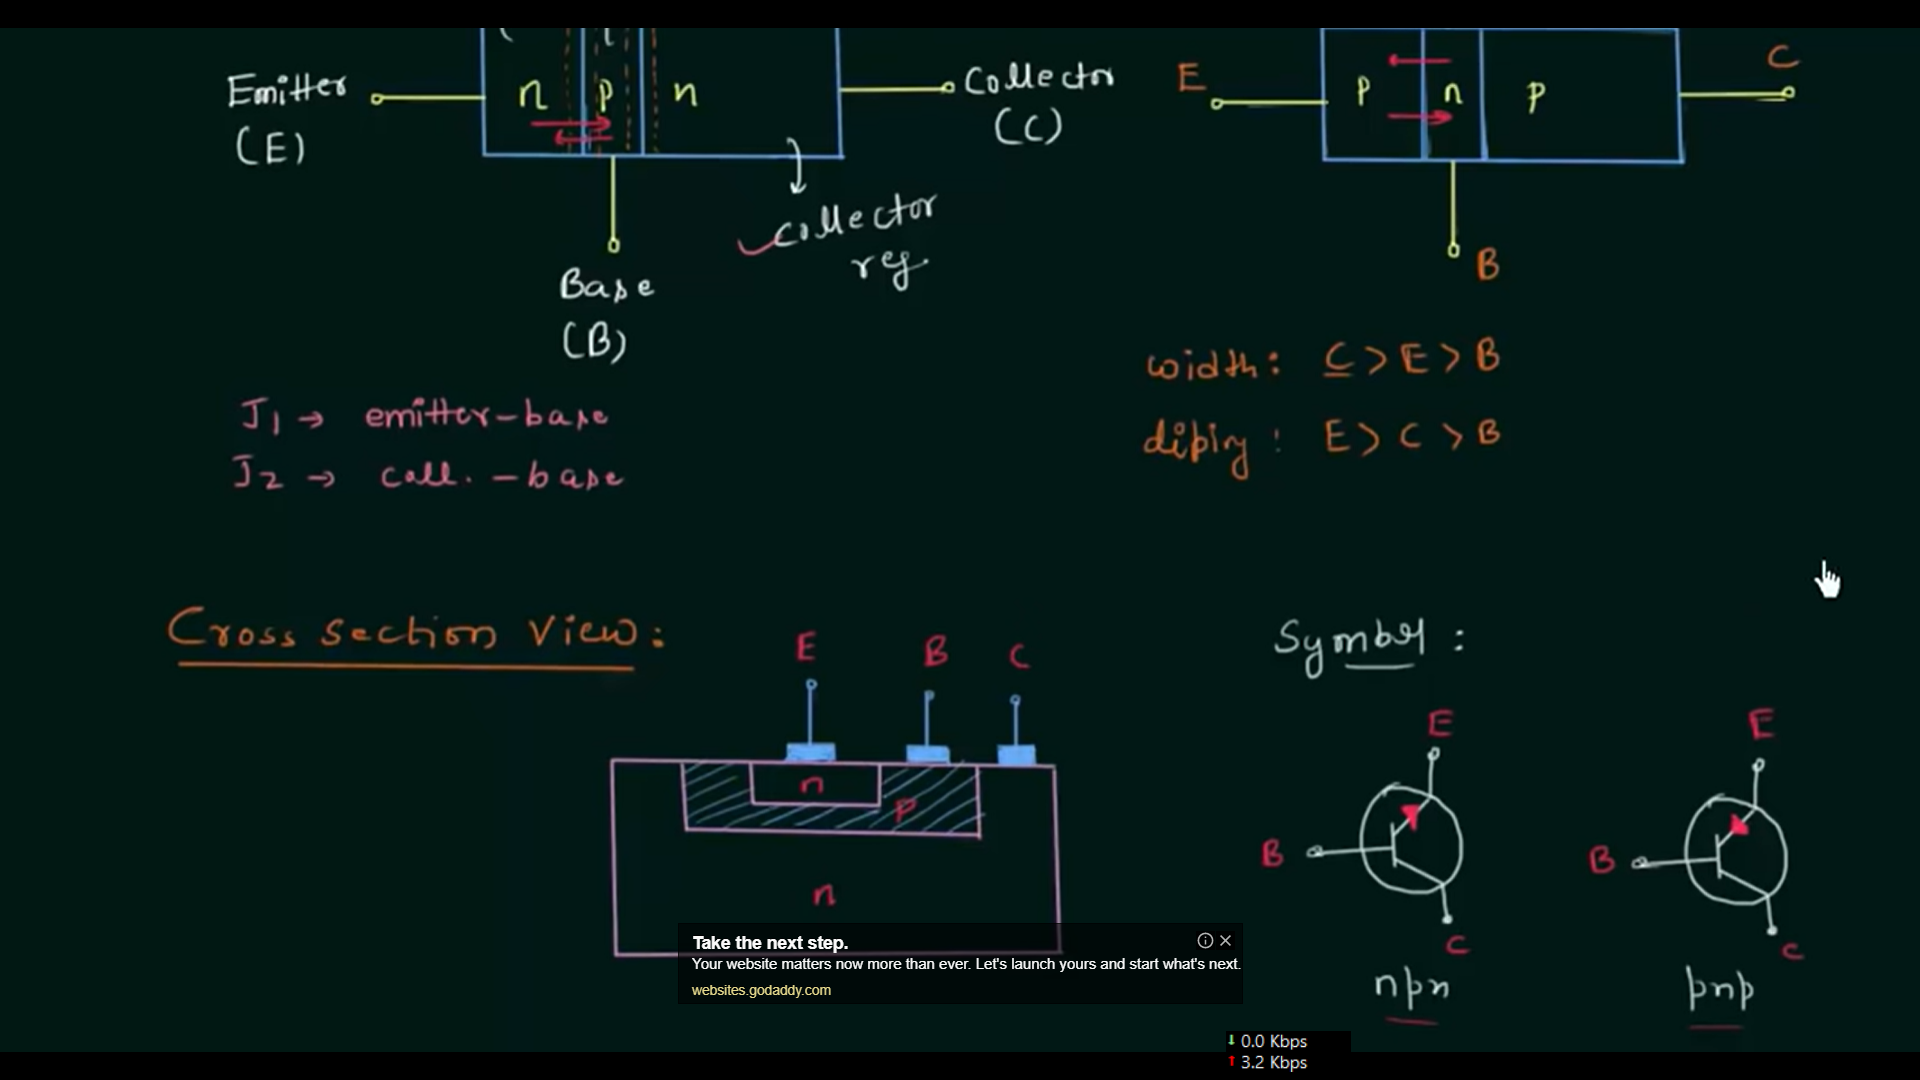 Emitter
(E)
n
p
n
Collector
(C)
collector
reg.
Base
(B)
E
p
n
p
C
B
width: C > E > B
doping: E > C > B
J1 → emitter-base
J2 → coll. - base
Cross section View:
E B C
n
p
n
Symbol:
E
B
C
npn
E
B
C
pnp
Take the next step.
Your website matters now more than ever. Let's launch yours and start what's next.
websites.godaddy.com
0.0 Kbps
3.2 Kbps